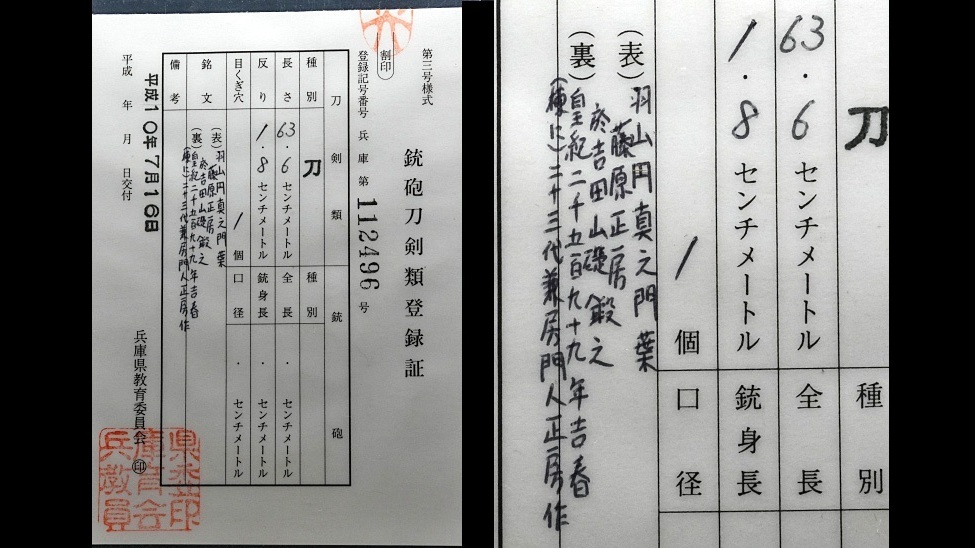 第三号様式
銃砲刀剣類登録証
割印
登録記号番号 兵庫 第 112496 号
刀剣類
銃砲
種別 刀
種別
長さ 63.6 センチメートル
全長 . センチメートル
反り 1.8 センチメートル
銃身長 . センチメートル
目くぎ穴 1 個
口径 . センチメートル
銘文
(表) 羽山円真之門葉
藤原正房
於吉田山礎鍛之
(裏) 皇紀二千五百九十九年吉春
(棟に) 二十三代兼房門人正房作
備考
平成10年7月16日
平成 年 月 日交付
兵庫県教育委員会 印
63.6 センチメートル
1.8 センチメートル
1 個
刀
種別
全長
銃身長
口径
(表) 羽山円真之門葉
藤原正房
於吉田山礎鍛之
(裏) 皇紀二千五百九十九年吉春
(棟に) 二十三代兼房門人正房作